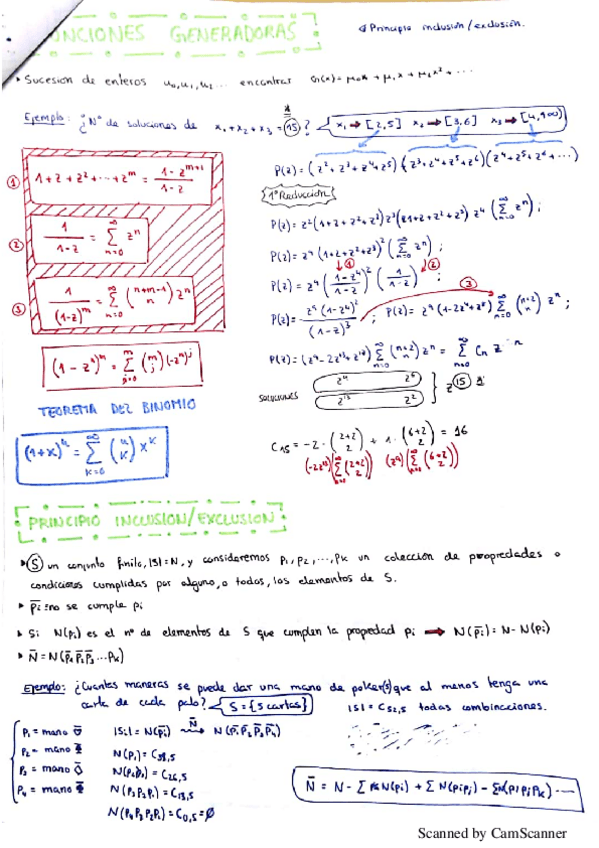 FUNCIONES GENERADORAS
Principio inclusión/exclusión.
▸ Sucesion de enteros u₀, u₁, u₂ ... encontrar G(x) = μ₀x + μ₁x + μ₂x² + ...
Ejemplo: ¿Nº de soluciones de x₁ + x₂ + x₃ = 15 ? x₁ → [2,5] x₂ → [3,6] x₃ → [4,+∞)
P(z) = (z² + z³ + z⁴ + z⁵) (z³ + z⁴ + z⁵ + z⁶) (z⁴ + z⁵ + z⁶ + ...)
① 1 + z + z² + ... + z^m = (1 - z^(m+1)) / (1 - z)
② 1/(1-z) = Σ_(n=0)^∞ z^n
③ 1/(1-z)^m = Σ_(n=0)^∞ (n+m-1 n) z^n
(1 - z^n)^m = Σ_(j=0)^m (m j) (-z^n)^j
1ª Reducción
P(z) = z² (1+z+z²+z³) z³ (1+z+z²+z³) z⁴ (Σ_(n=0)^∞ z^n) ;
P(z) = z⁹ (1+z+z²+z³)² (Σ_(n=0)^∞ z^n) ;
① ②
P(z) = z⁹ ((1-z⁴)/(1-z))² (1/(1-z)) ;
③
P(z) = z⁹ (1-z⁴)² / (1-z)³ ; P(z) = z⁹ (1-2z⁴+z⁸) Σ_(n=0)^∞ (n+2 n) z^n ;
P(z) = (z⁹ - 2z¹³ + z¹⁷) Σ_(n=0)^∞ (n+2 n) z^n = Σ_(n=0)^∞ C_n z^n
SOLUCIONES z⁹ z⁶
z¹³ z² } z¹⁵
C₁₅ = -2 · (2+2 2) + 1 · (6+2 2) = 16
(-2z¹³) (Σ (2+2 2)) (z⁹) (Σ (6+2 2))
TEOREMA DEL BINOMIO
(1+x)^n = Σ_(k=0)^∞ (n k) x^k
PRINCIPIO INCLUSION/EXCLUSION
▸ S un conjunto finito, |S| = N, y consideremos p₁, p₂, ..., pk un colección de propiedades o
condiciones cumplidas por alguno, o todos, los elementos de S.
▸ p̄i ≡ no se cumple pi
▸ Si N(pi) es el nº de elementos de S que cumplen la propiedad pi → N(p̄i) = N - N(pi)
▸ N̄ = N(p̄₁ p̄₂ p̄₃ ... p̄k)
Ejemplo: ¿Cuantas maneras se puede dar una mano de poker(5) que al menos tenga una
carta de cada palo? S = {5 cartas} |S| = C₅₂,₅ todas combinaciones.
P₁ = mano
P₂ = mano
P₃ = mano
P₄ = mano
|S| = N(p̄i) N̄ → N(p̄₁ p̄₂ p̄₃ p̄₄)
N(Pi) = C₃₉,₅
N(PiPj) = C₂₆,₅
N(P₃P₂P₁) = C₁₃,₅
N(P₄P₃P₂P₁) = C₀,₅ = Ø
N̄ = N - Σ N(pi) + Σ N(pipj) - Σ N(pipjpk) ....
Scanned by CamScanner